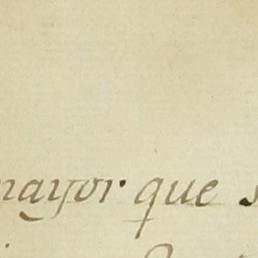 mayor que